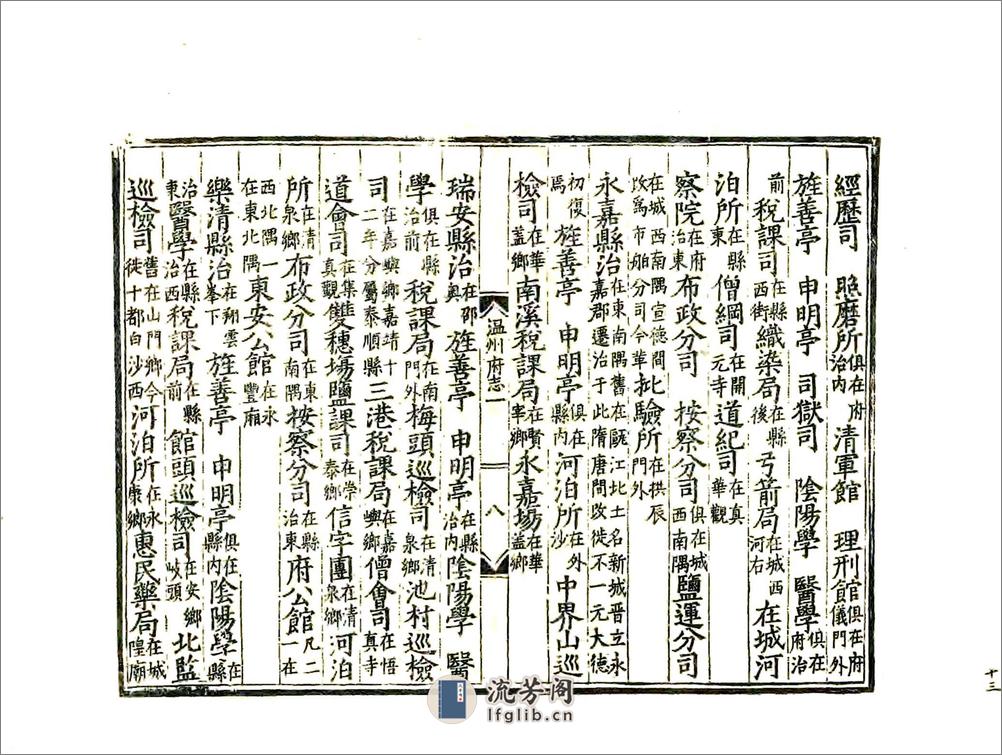 經歷司 照磨所俱在府治內 清軍館 理刑館俱在府儀門外
旌善亭 申明亭 司獄司 陰陽學 醫學俱在府治
前稅課司在縣西街織染局在縣後弓箭局在城西河右在城河
泊所在縣東僧綱司在開元寺道紀司在真華觀
察院在府治東布政分司 按察分司俱在城西南隅鹽運分司
在城西南隅宣德間改為市舶分司今革批驗所在拱辰門外
永嘉縣治在東南隅舊在甌江北土名新城晉立永嘉郡遷治于此隋唐間改徙不一元大德
初復焉 旌善亭 申明亭俱在縣內河泊所在外沙中界山巡
檢司在華蓋鄉南溪稅課局在賢宰鄉永嘉場在華蓋鄉
溫州府志一 八
瑞安縣治在邵奧 旌善亭 申明亭在縣治內陰陽學 醫
學俱在縣治前稅課局在南門外梅頭巡檢司在清泉鄉池村巡檢
司在嘉嶼鄉嘉靖十二年分屬泰順縣三港稅課局在嘉嶼鄉僧會司在悟真寺
道會司在集真觀雙穗場鹽課司在崇泰鄉信字團在清泉鄉河泊
所在清泉鄉布政分司在東南隅按察分司在縣治東府公館凡二一在
西北隅一在東北隅東安公館在永豐廂
樂清縣治在翔雲峯下旌善亭 申明亭俱在縣內陰陽學在縣
治東醫學在縣治西稅課局在縣前館頭巡檢司在安鄉岐頭北監
巡檢司舊在山門鄉今徙十都白沙西河泊所在永康鄉惠民藥局在城隍廟
十三
流芳阁
lfglib.cn